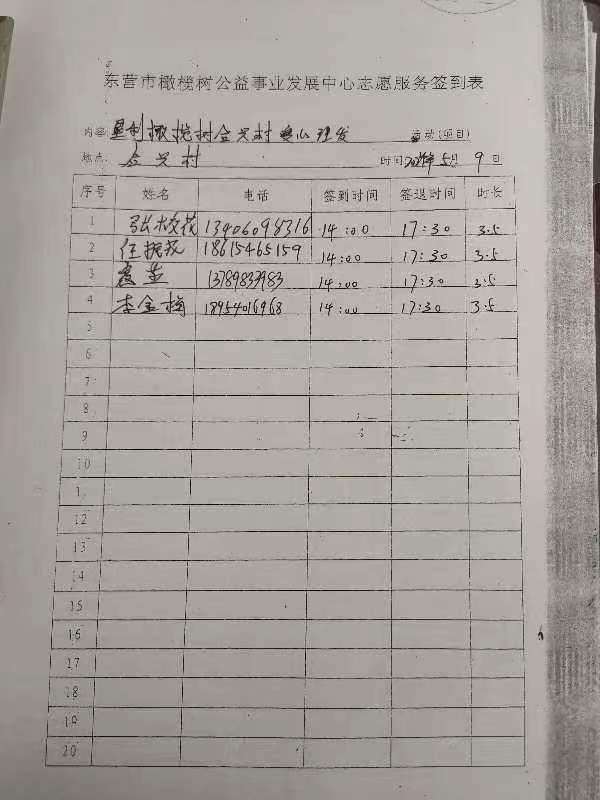 东营市橄榄树公益事业发展中心志愿服务签到表
内容: 垦利橄榄树合兴村爱心理发 活动(项目)
地点: 合兴村 时间: 年 5月 9日
序号 姓名 电话 签到时间 签退时间 时长
1 张校花 13406098316 14:00 17:30 3.5
2 任振花 18615465159 14:00 17:30 3.5
3 13789833983 14:00 17:30 3.5
4 李金梅 18954016968 14:00 17:30 3.5
5
6
7
8
9
10
11
12
13
14
15
16
17
18
19
20